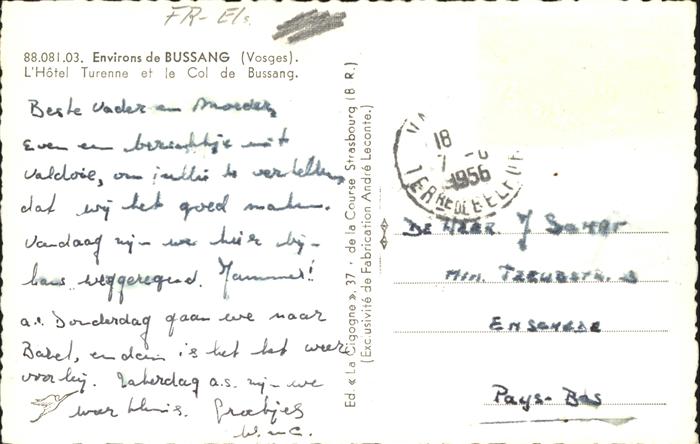 FR- Els.
88.081.03. Environs de BUSSANG (Vosges).
L'Hôtel Turenne et le Col de Bussang.
Beste Vader en Moeder,
Even een berichtje uit
Valdoie, om jullie te vertellen,
dat wij het goed maken.
Vandaag zijn we hier bij-
kans weggeregend. Jammer!!
a.s. Donderdag gaan we naar
Basel, en dan is het het weer
voorbij. Zaterdag a.s. zijn we
weer thuis. Groetjes
Ed. « La Cigogne », 37 · de la Course Strasbourg (B R.)
(Exclusivité de Fabrication André Leconte.)
18
1956
TERRE DE BELFORT
DE HEER J
Min.
ENSCHEDE
Pays-Bas